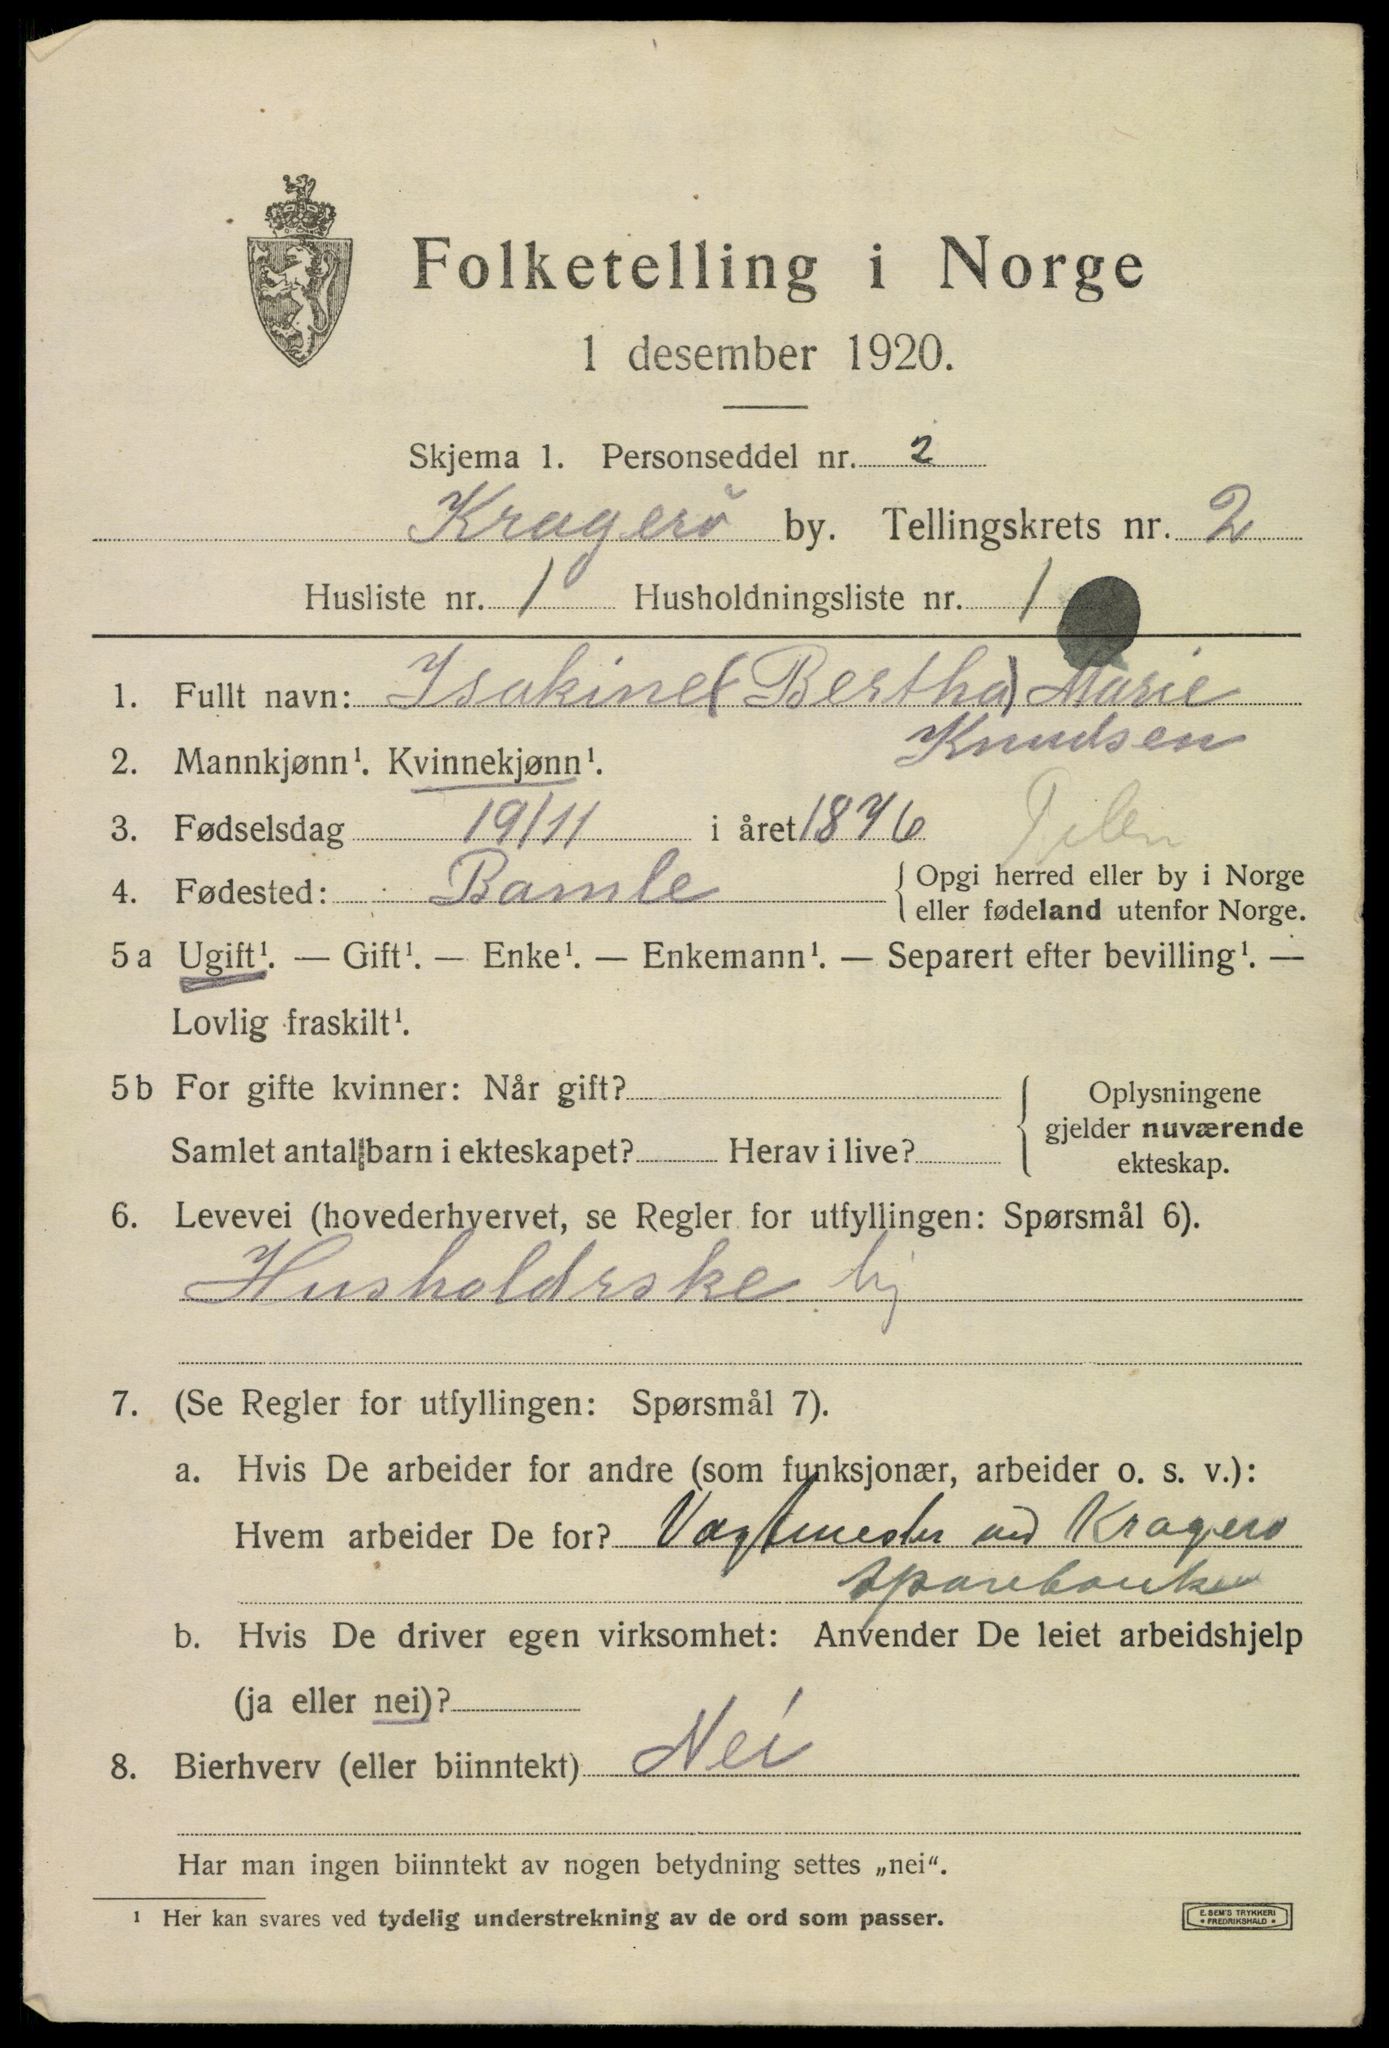 Folketelling i Norge
1 desember 1920.
Skjema 1. Personseddel nr. 2
Kragerö by. Tellingskrets nr. 2
Husliste nr. 1 Husholdningsliste nr. 1
1. Fullt navn: Isakine (Bertha) Marie
Knudsen
2. Mannkjønn¹. Kvinnekjønn¹.
3. Fødselsdag 19/11 i året 1876
4. Fødested: Bamle { Opgi herred eller by i Norge
eller fødeland utenfor Norge.
5a Ugift¹. — Gift¹. — Enke¹. — Enkemann¹. — Separert efter bevilling¹. —
Lovlig fraskilt¹.
5b For gifte kvinner: Når gift?
Samlet antal barn i ekteskapet? Herav i live?
{ Oplysningene
gjelder nuværende
ekteskap.
6. Levevei (hovederhvervet, se Regler for utfyllingen: Spørsmål 6).
Husholderske
7. (Se Regler for utfyllingen: Spørsmål 7).
a. Hvis De arbeider for andre (som funksjonær, arbeider o. s. v.):
Hvem arbeider De for? Vagtmester ved Kragerø
Sparebank
b. Hvis De driver egen virksomhet: Anvender De leiet arbeidshjelp
(ja eller nei)?
8. Bierhverv (eller biinntekt) Nei
Har man ingen biinntekt av nogen betydning settes „nei“.
¹ Her kan svares ved tydelig understrekning av de ord som passer.
E. SEM'S TRYKKERI
• FREDRIKSHALD •